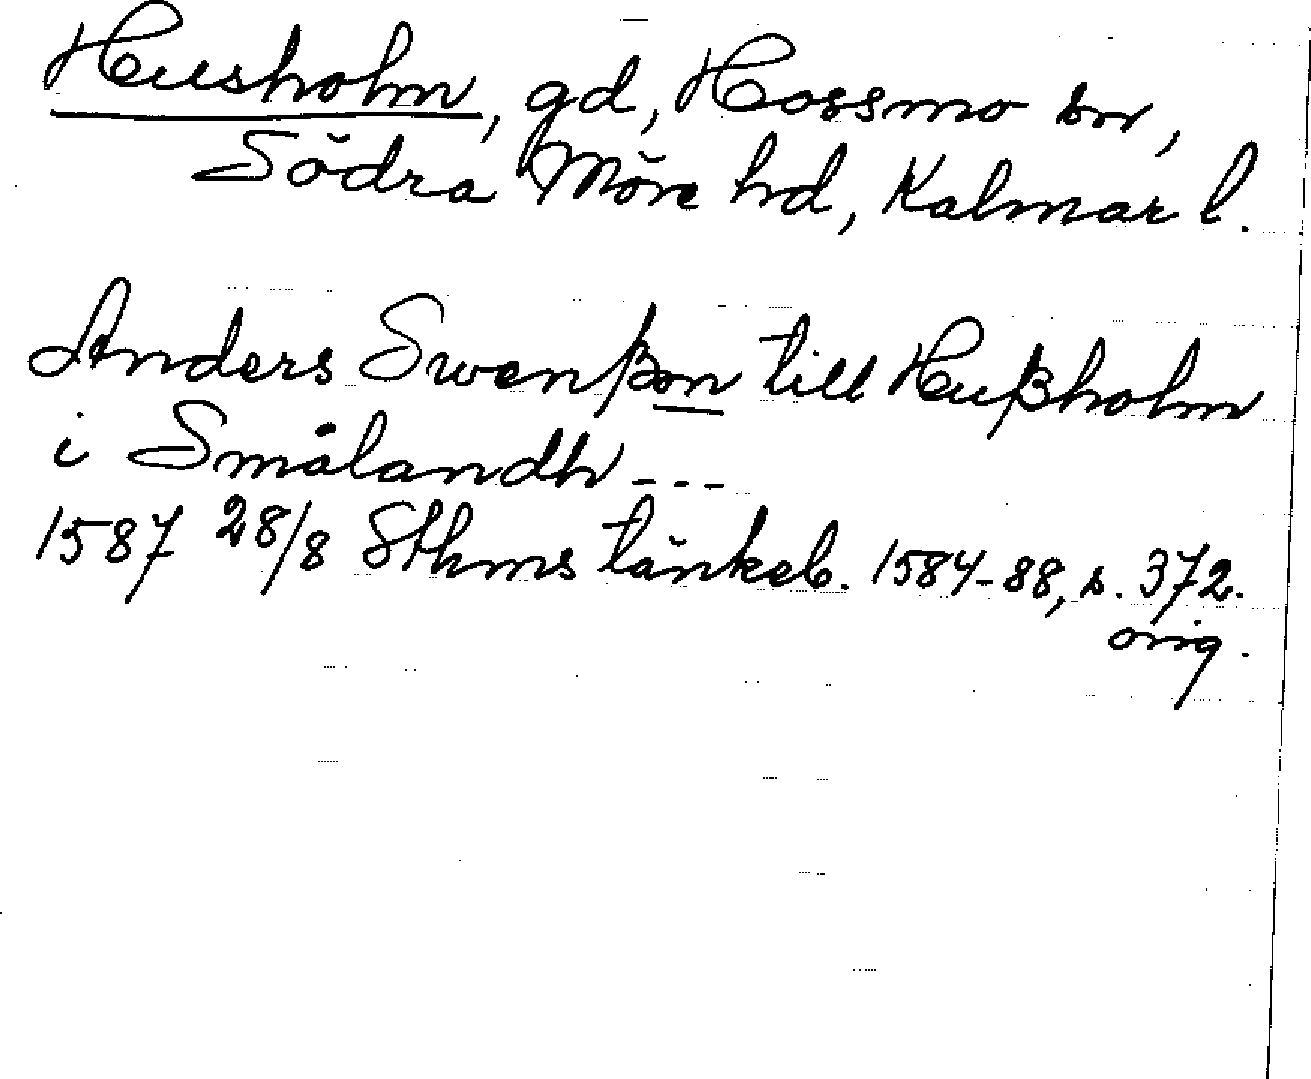 Husholm, gd, Hossmo sn,
Södra Möre hd, Kalmar l.
Anders Swenßon till Hußholm
i Smålandh ---
1587 28/8 Sthms tänkeb. 1584-88, s. 372.
orig.